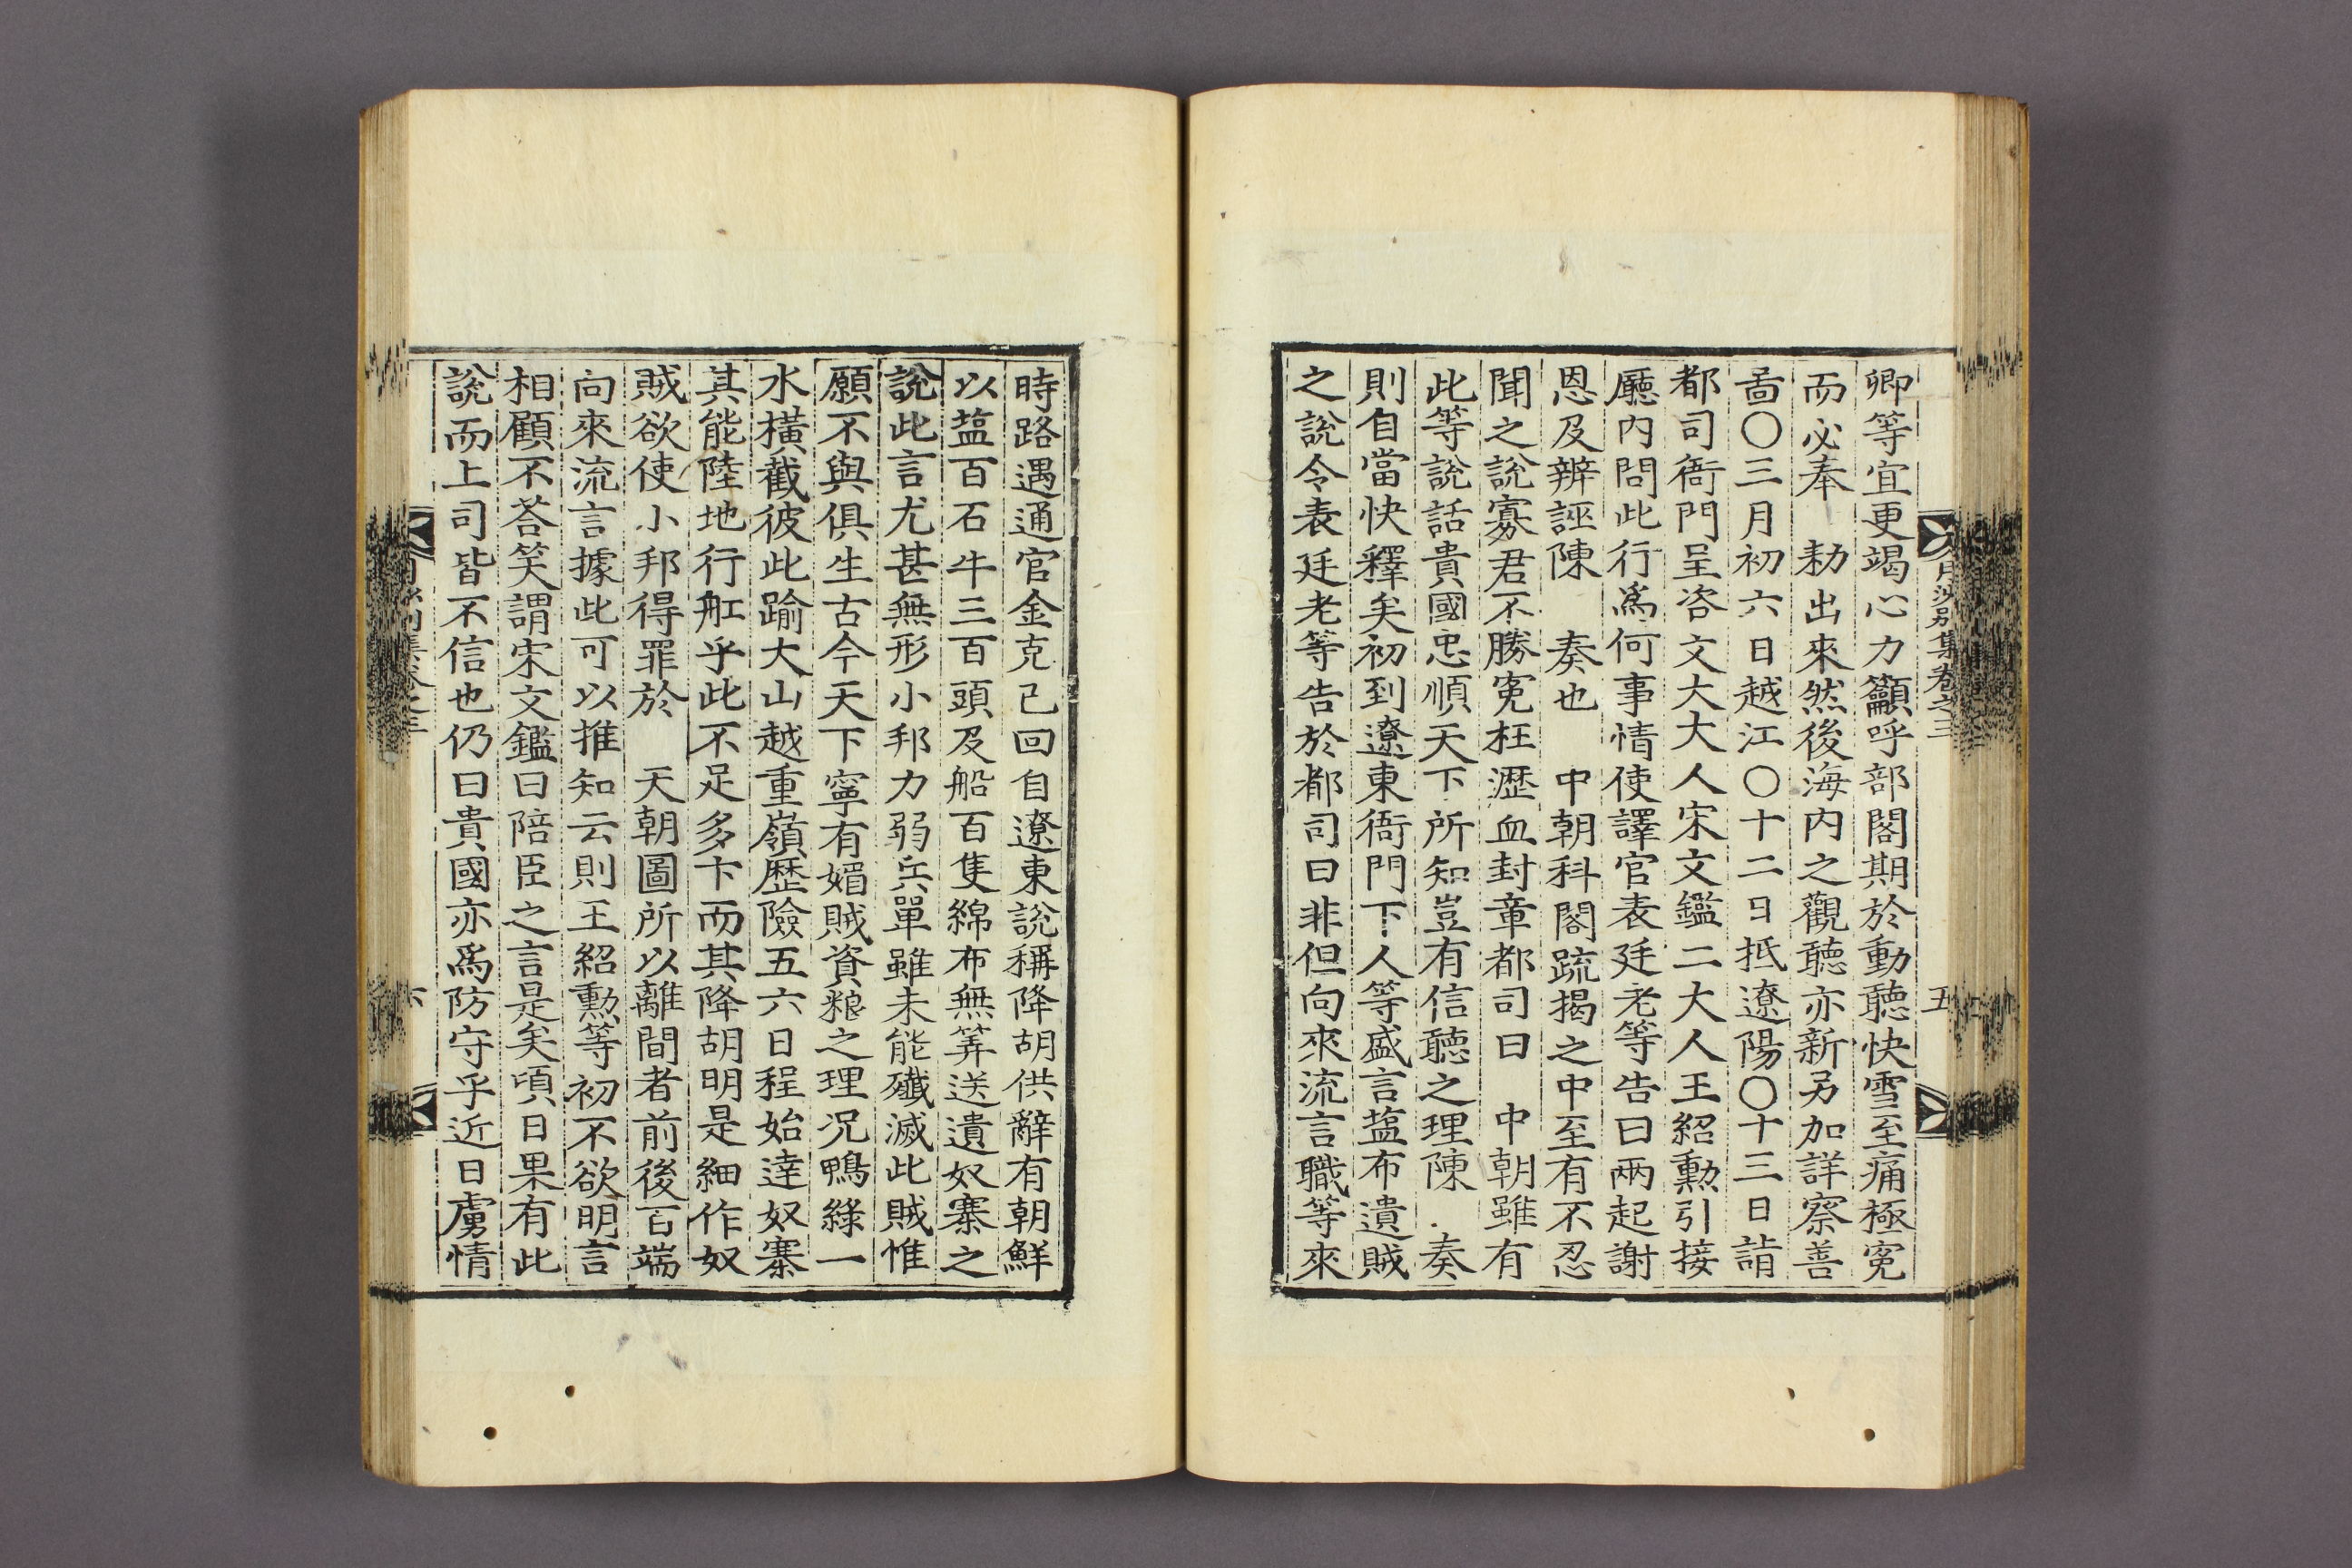 月沙別集卷之三
五
卿等宜更竭心力籲呼部閣期於動聽快雪至痛極寃
而必奉 勑出來然後海內之觀聽亦新另加詳察善
啚○三月初六日越江○十二日抵遼陽○十三日詣
都司衙門呈咨文大大人宋文鑑二大人王紹勳引接
廳內問此行爲何事情使譯官表廷老等告曰兩起謝
恩及辨誣陳 奏也 中朝科閣疏揭之中至有不忍
聞之說寡君不勝寃枉瀝血封章都司曰 中朝雖有
此等說話貴國忠順天下所知豈有信聽之理陳 奏
則自當快釋矣初到遼東衙門下人等盛言塩布遺賊
之說令表廷老等告於都司曰非但向來流言職等來
時路遇通官金克己回自遼東說稱降胡供辭有朝鮮
以塩百石牛三百頭及船百隻綿布無筭送遺奴寨之
說此言尤甚無形小邦力弱兵單雖未能殲滅此賊惟
願不與俱生古今天下寧有媚賊資粮之理况鴨綠一
水橫截彼此踰大山越重嶺歷險五六日程始達奴寨
其能陸地行舡乎此不足多卞而其降胡明是細作奴
賊欲使小邦得罪於 天朝圖所以離間者前後百端
向來流言據此可以推知云則王紹勳等初不欲明言
相顧不荅笑謂宋文鑑曰陪臣之言是矣頃日果有此
說而上司皆不信也仍曰貴國亦爲防守乎近日虜情